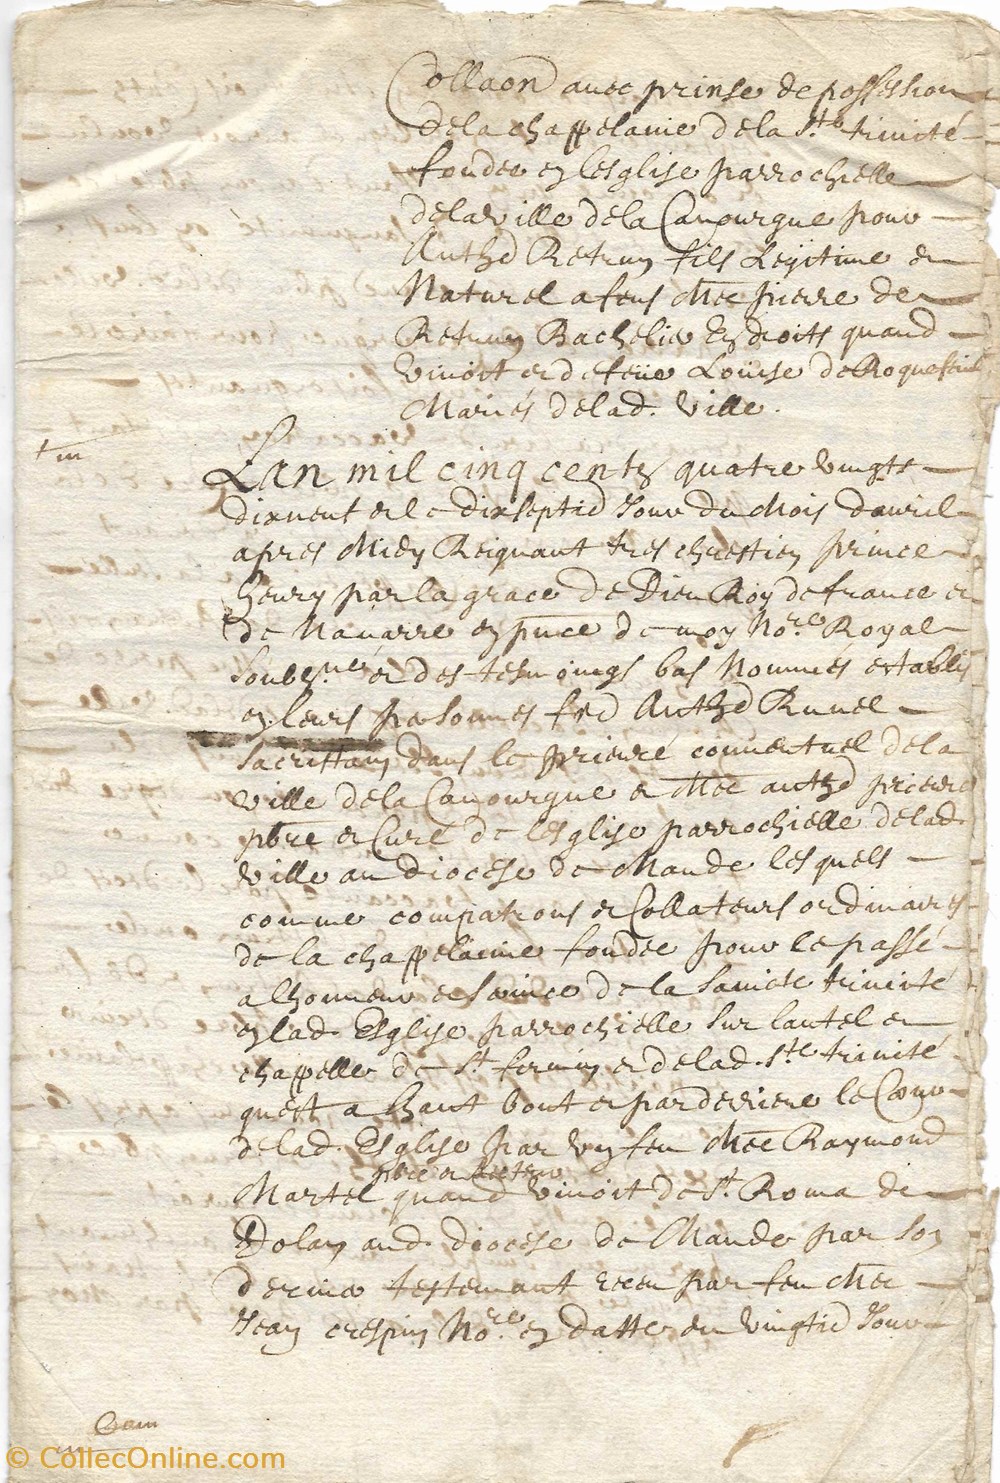 Colla͠on avec prinse de possession
de la chappelanie de la Ste trinité
fondée en lesglise parrochielle
de la ville de la Canourgue pour
Anthe Retrun fils Legitime et
Naturel a feus Mee pierre de
Retrun Bachelier En droits quand
vivoit et de feüe Loüise de Roquefeuil
Mariés de lad. ville.
Lan mil cinq cents quatre vingts
dixneuf et le dixseptie Jour du Mois davril
apres Midy Reignant tres chrestien prince
henry par la grace de Dieu Roy de france et
de Navarre en pnce de moy Nore Royal
soubsne et des tesmoings bas Nommés establis
en leurs personnes frd Anthe Runel
Sacristain dans le prieuré conventuel de la
ville de la Canourgue et Mee anthe prieure
pbre et Curé de lesglise parrochielle de lad
ville au diocese de Mande lesquels
comme compatrons et Collateurs ordinaires
de la chappelanie fondée pour le passé
a lhonneur et service de la saincte trinité
en lad. Esglise parrochielle sur lautel et
chappelle de St firmin et de lad. Ste trinité
quest a haut bout et par derriere le Cœur
de lad. Esglise par un feu Mee Raymond
pbre et Recteur
Martel quand vivoit de St Roma de
Dolan aud. diocese de Mande par son
dernier testemant receu par feu Mee
Jean crespin Nore en datte du vingtie Jour
© CollecOnline.com